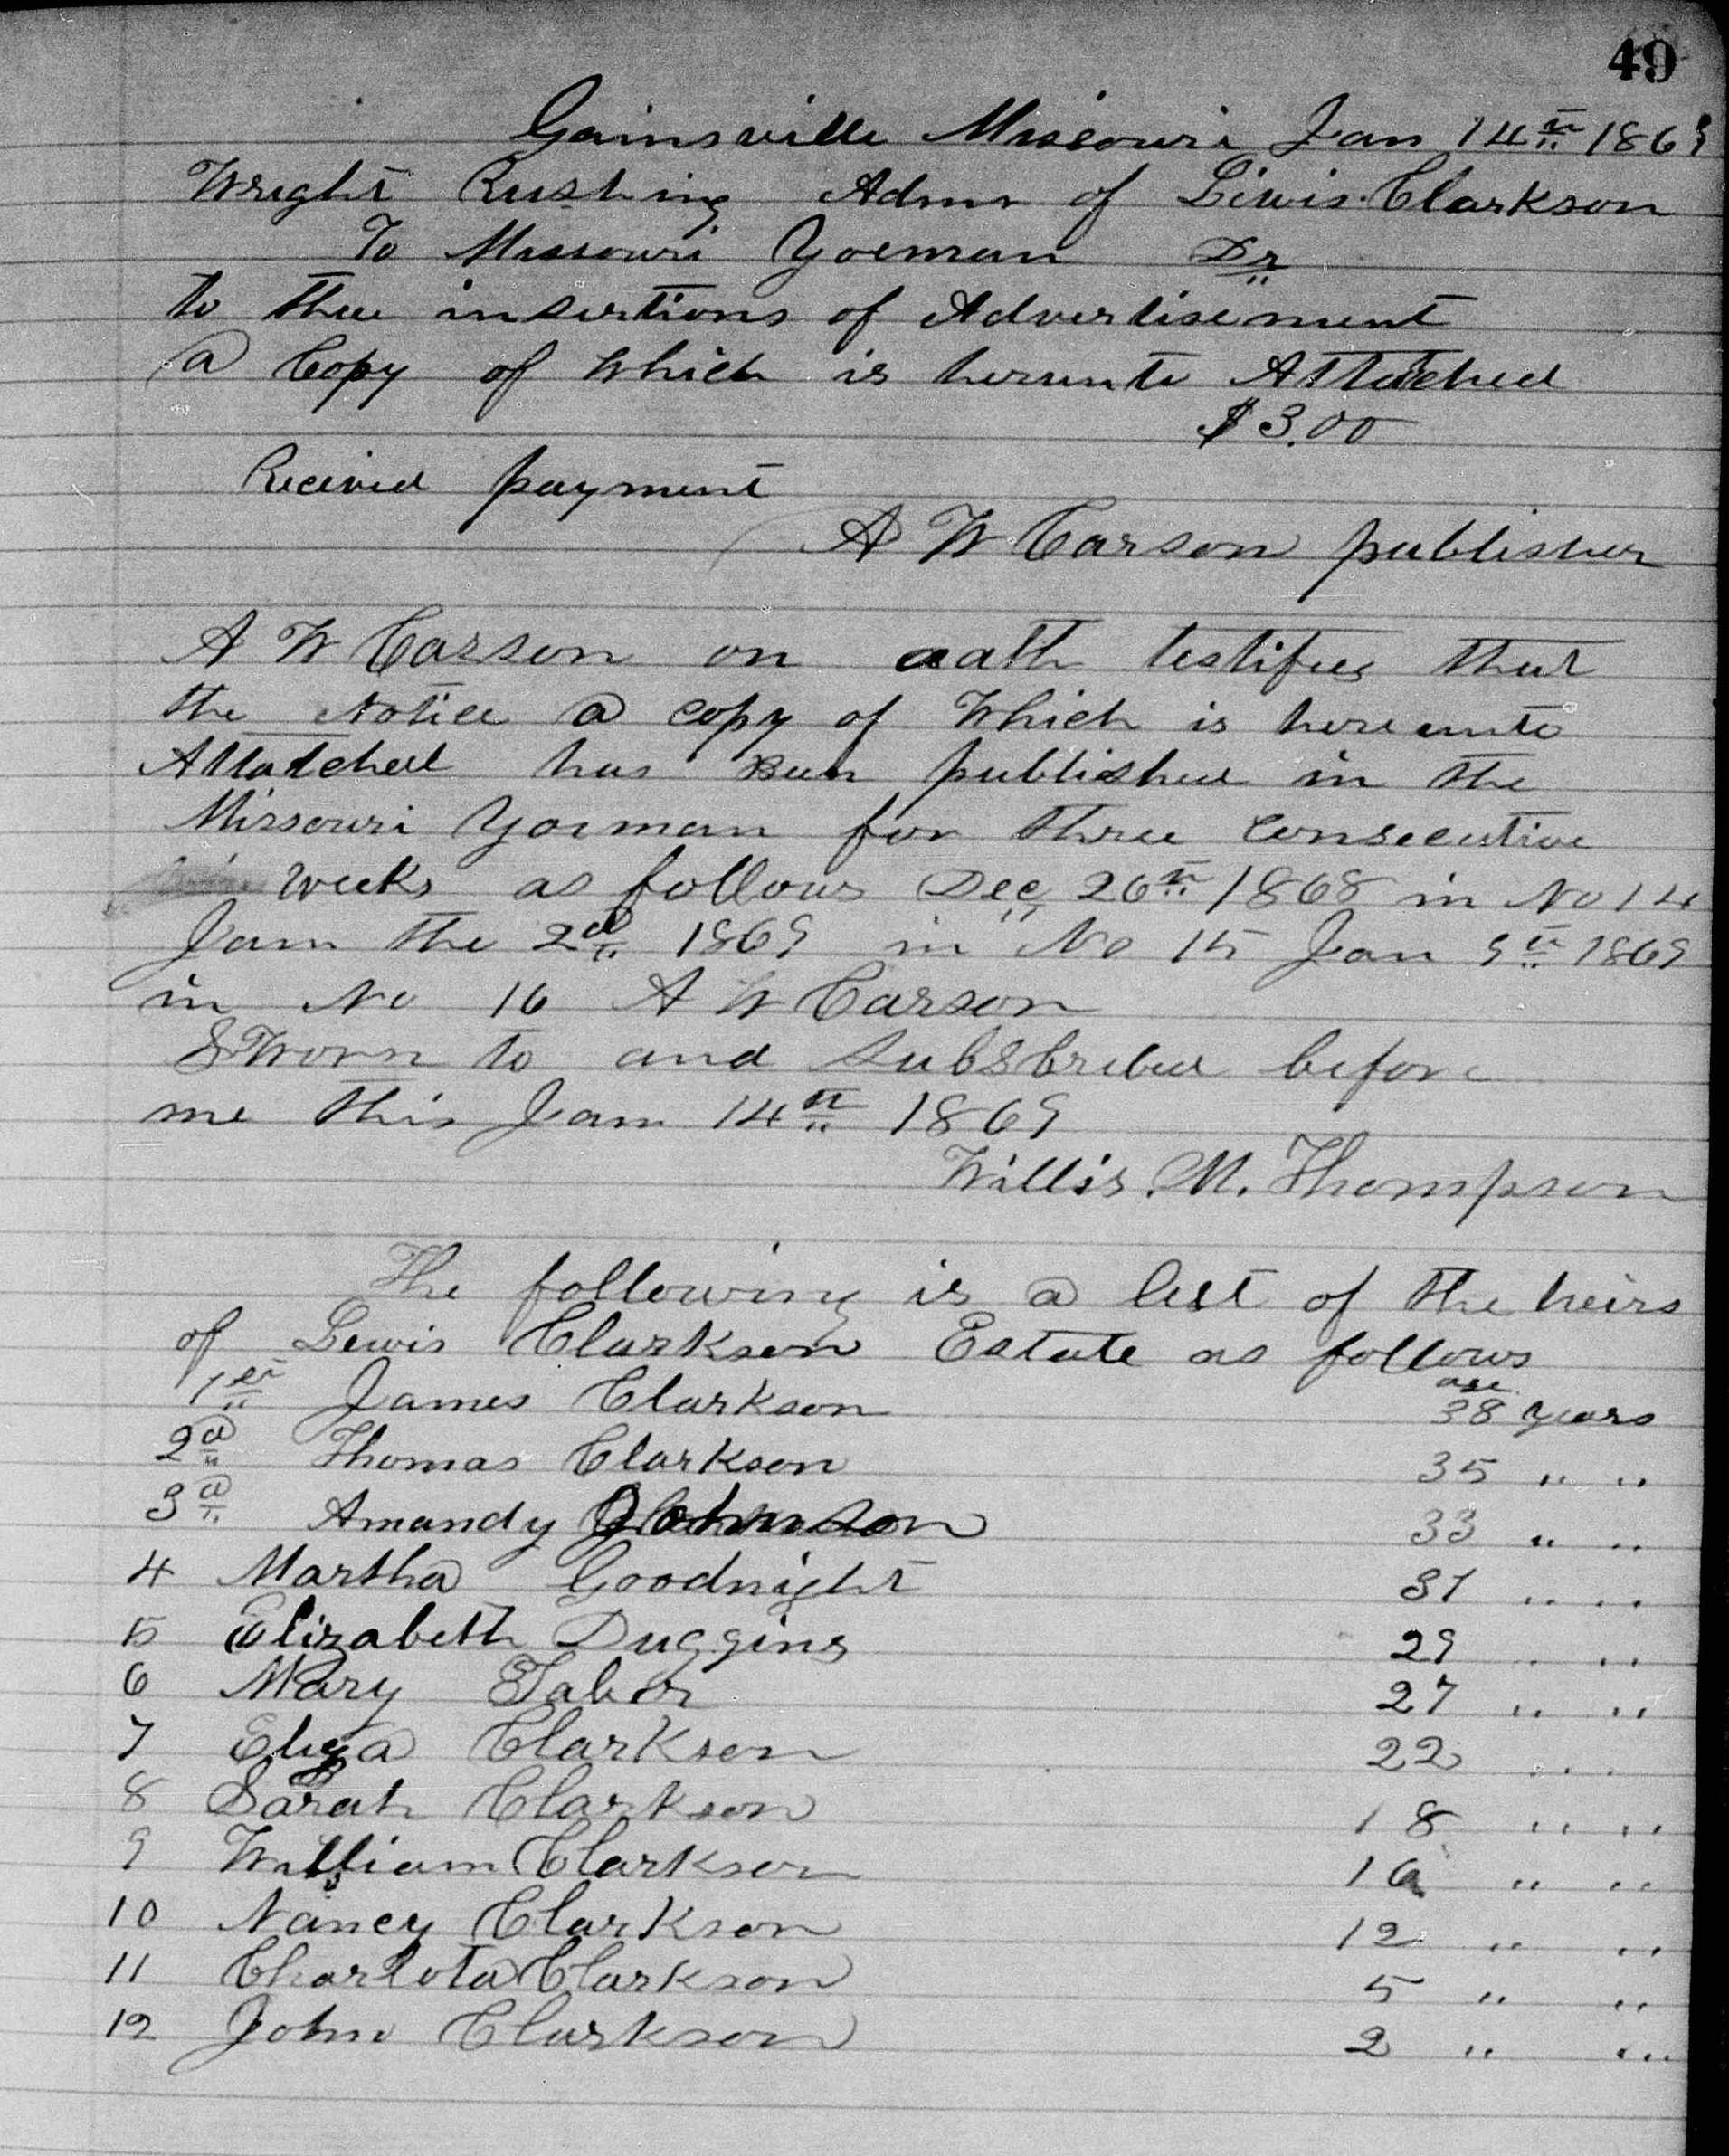 49
Gainsville Missouri Jan 14th 1869
Wright Rushing Admr of Liwis Clarkson
To Missouri Yoeman Dr
to thee insertions of Advertisement
a Copy of which is herunto Attatched
$3.00
Received payment
A W Carson publisher
A W Carson on oath testifies that
the Notice a copy of Which is hereunto
Attatched has Been published in the
Missouri Yoeman for three consecutive
weeks as follows Dec 26th 1868 in No 14
Jan the 2d 1869 in No 15 Jan 9th 1869
in No 16 A W Carson
SWorn to and SubsCribed before
me this Jan 14th 1869
Willis. M. Thompson
The following is a list of the heirs
of Lewis Clarkson Estate as follows
1st James Clarkson age 38 years
2d Thomas Clarkson 35 " "
3d Amandy Johnson 33 " "
4 Martha Goodnight 31 " "
5 Elizabeth Duggins 29 " "
6 Mary Tabor 27 " "
7 Eliza Clarkson 22 " "
8 Sarah Clarkson 18 " "
9 William Clarkson 16 " "
10 Nancy Clarkson 12 " "
11 Charlota Clarkson 5 " "
12 John Clarkson 2 " "